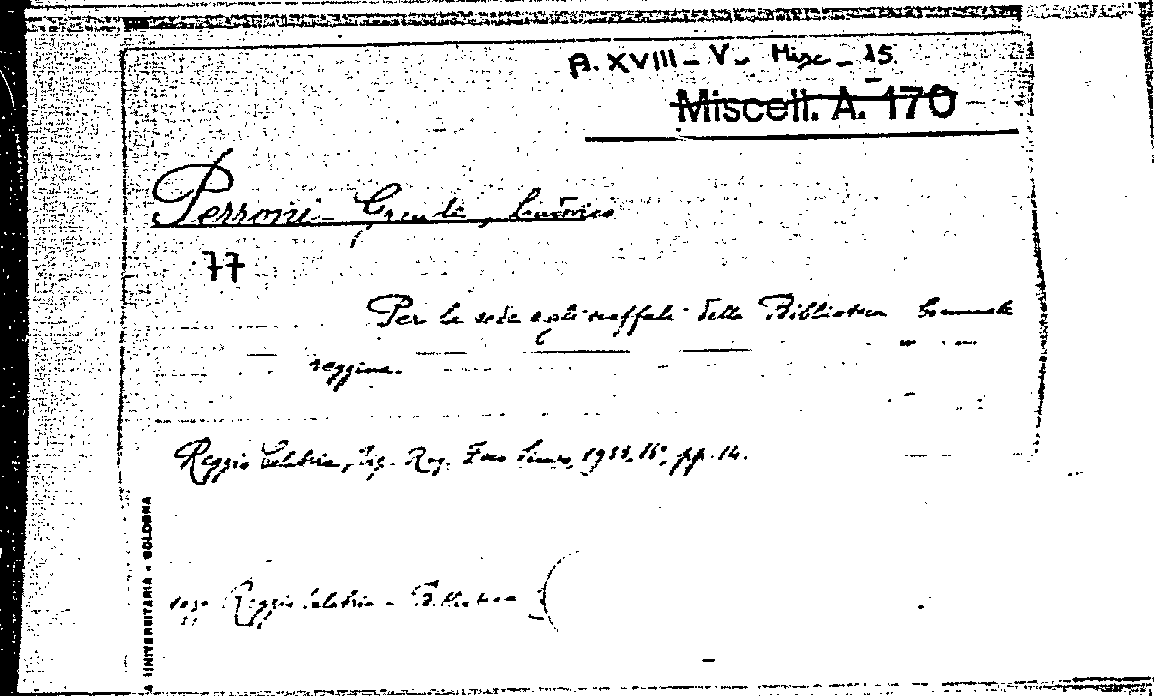 A. XVIII - V - Misc - 15.
Miscell. A. 170
Perroni - Grande, Ludovico
77
Per la sede e gli scaffali della Biblioteca Comunale
reggina.
Reggio Calabria, Tip. 16°, pp. 14.
Reggio Calabria - Biblioteca
UNIVERSITARIA - BOLOGNA